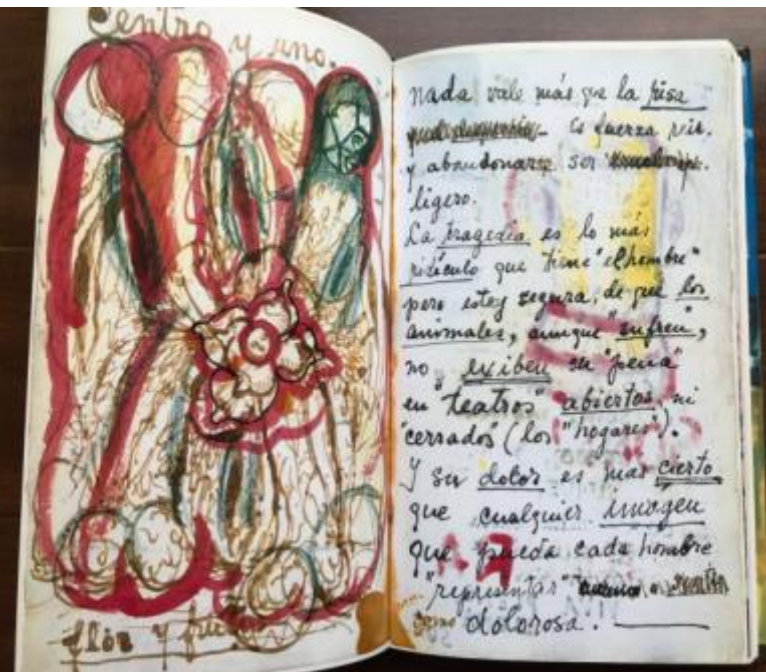 Centro y uno.
flor y
nada vale más que la risa
Es fuerza reir.
y abandonarse ser
ligero.
La tragedia es lo más
ridículo que tiene "el hombre"
pero estoy segura, de que los
animales, aunque "sufren",
no exiben su "pena"
en "teatros" abiertos, ni
"cerrados" (los "hogares").
Y su dolor es mas cierto
que cualquier imagen
que pueda cada hombre
"representar"
como dolorosa.